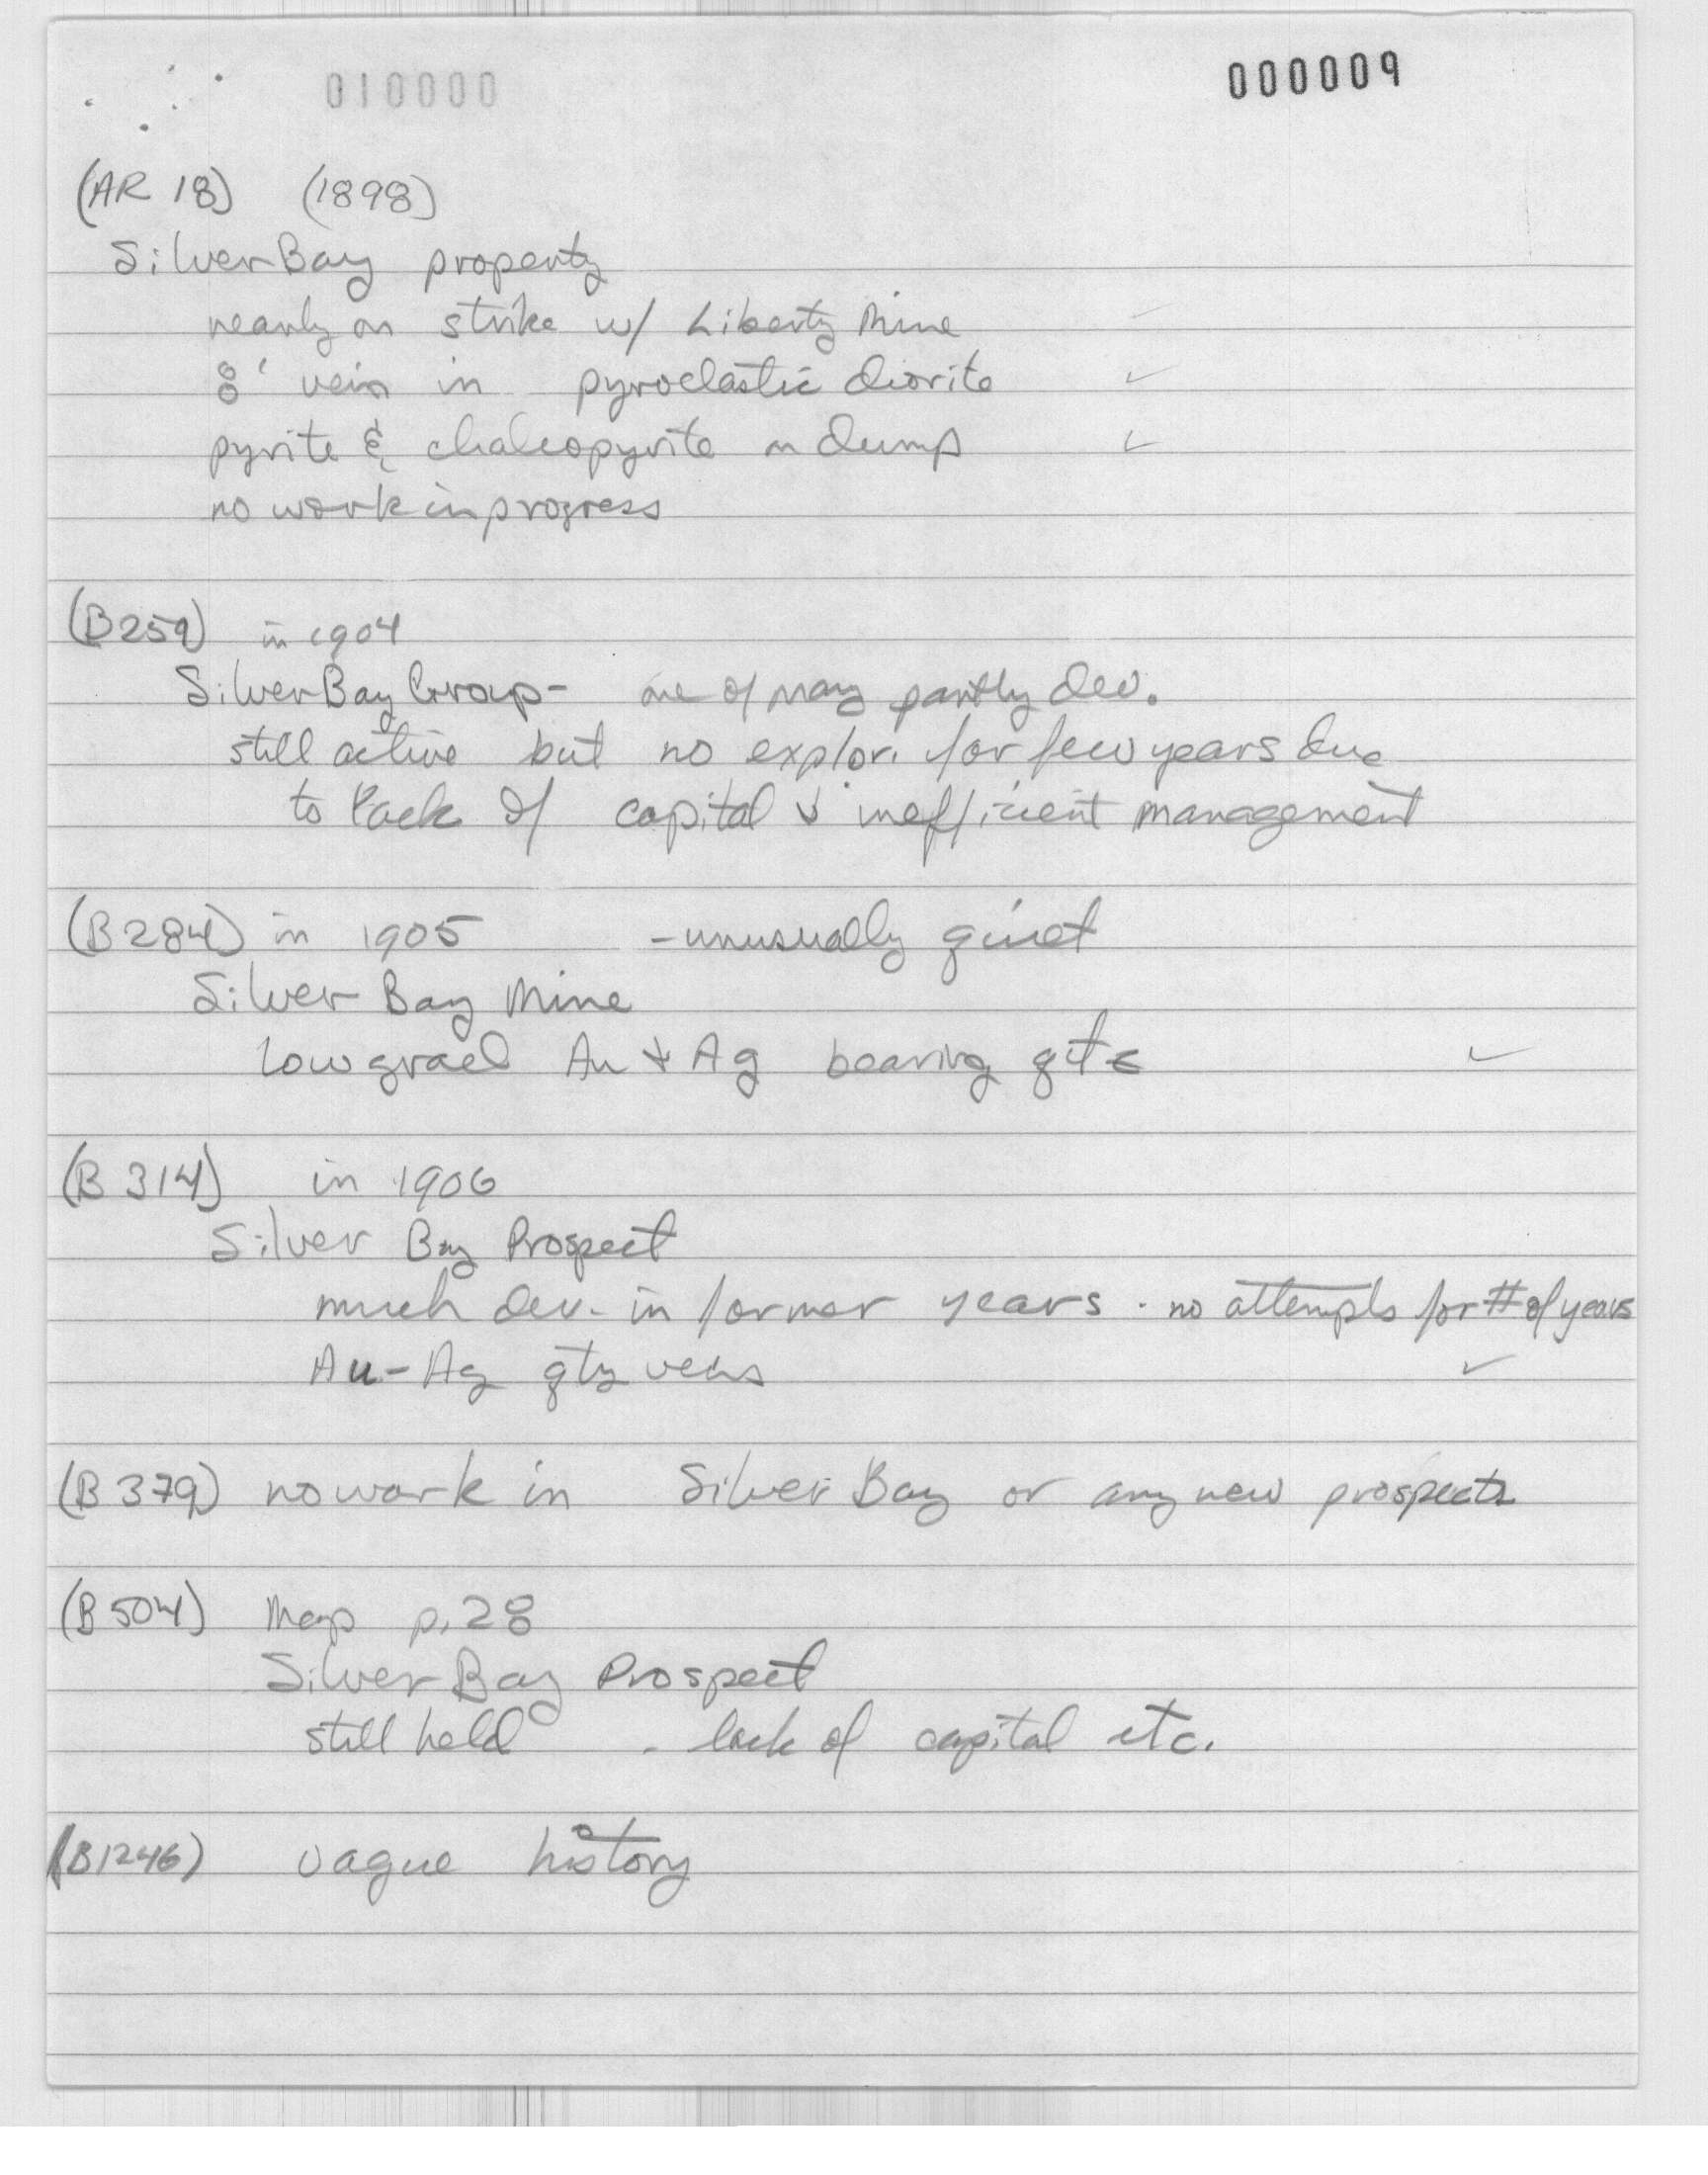 010000 000009
(AR 18) (1898)
Silver Bay property
nearly on strike w/ Liberty Mine
8' vein in pyroclastic diorite ✓
pyrite & chalcopyrite on dump ✓
no work in progress
(B259) in 1904
Silver Bay Group - one of many partly dev.
still active but no explor. for few years due
to lack of capital & inefficient management
(B284) in 1905 - unusually quiet
Silver Bay Mine
low grael Au & Ag bearing qtz ✓
(B 314) in 1906
Silver Bay Prospect
much dev. in former years - no attempts for # of years
Au-Ag qtz veins ✓
(B 379) no work in Silver Bay or any new prospects
(B 504) Map p. 28
Silver Bay Prospect
still held - lack of capital etc.
(B1246) vague history